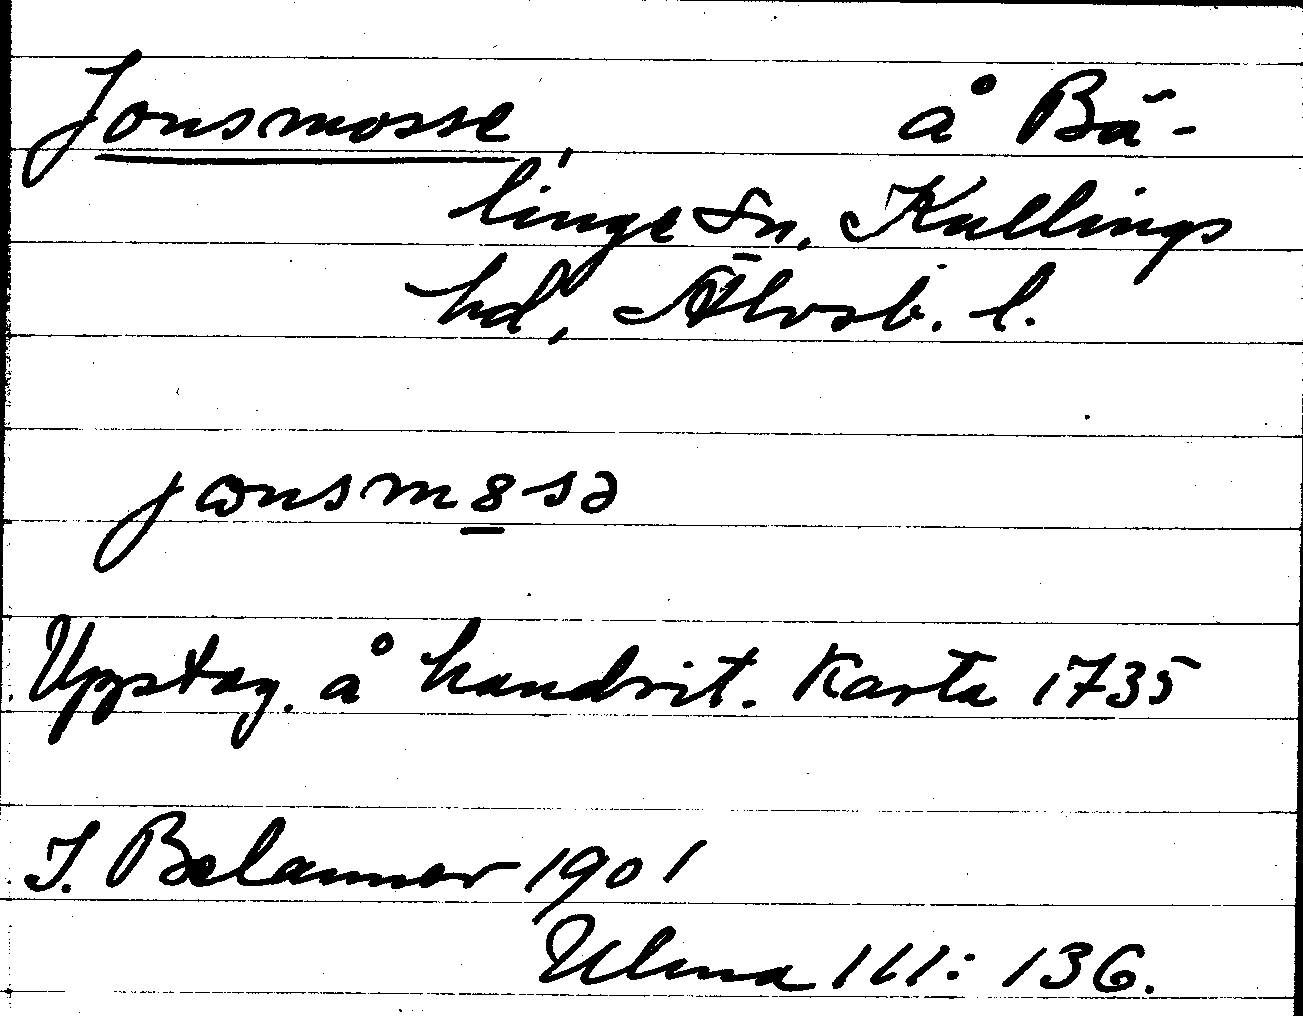 Jonsmosse, å Bä-
linge sn, Kullings
hd, Älvsb. l.
jɷnsm8sə
Uppstag. å handrit. Karta 1735
J. Belanner 1901
Ulma 111: 136.